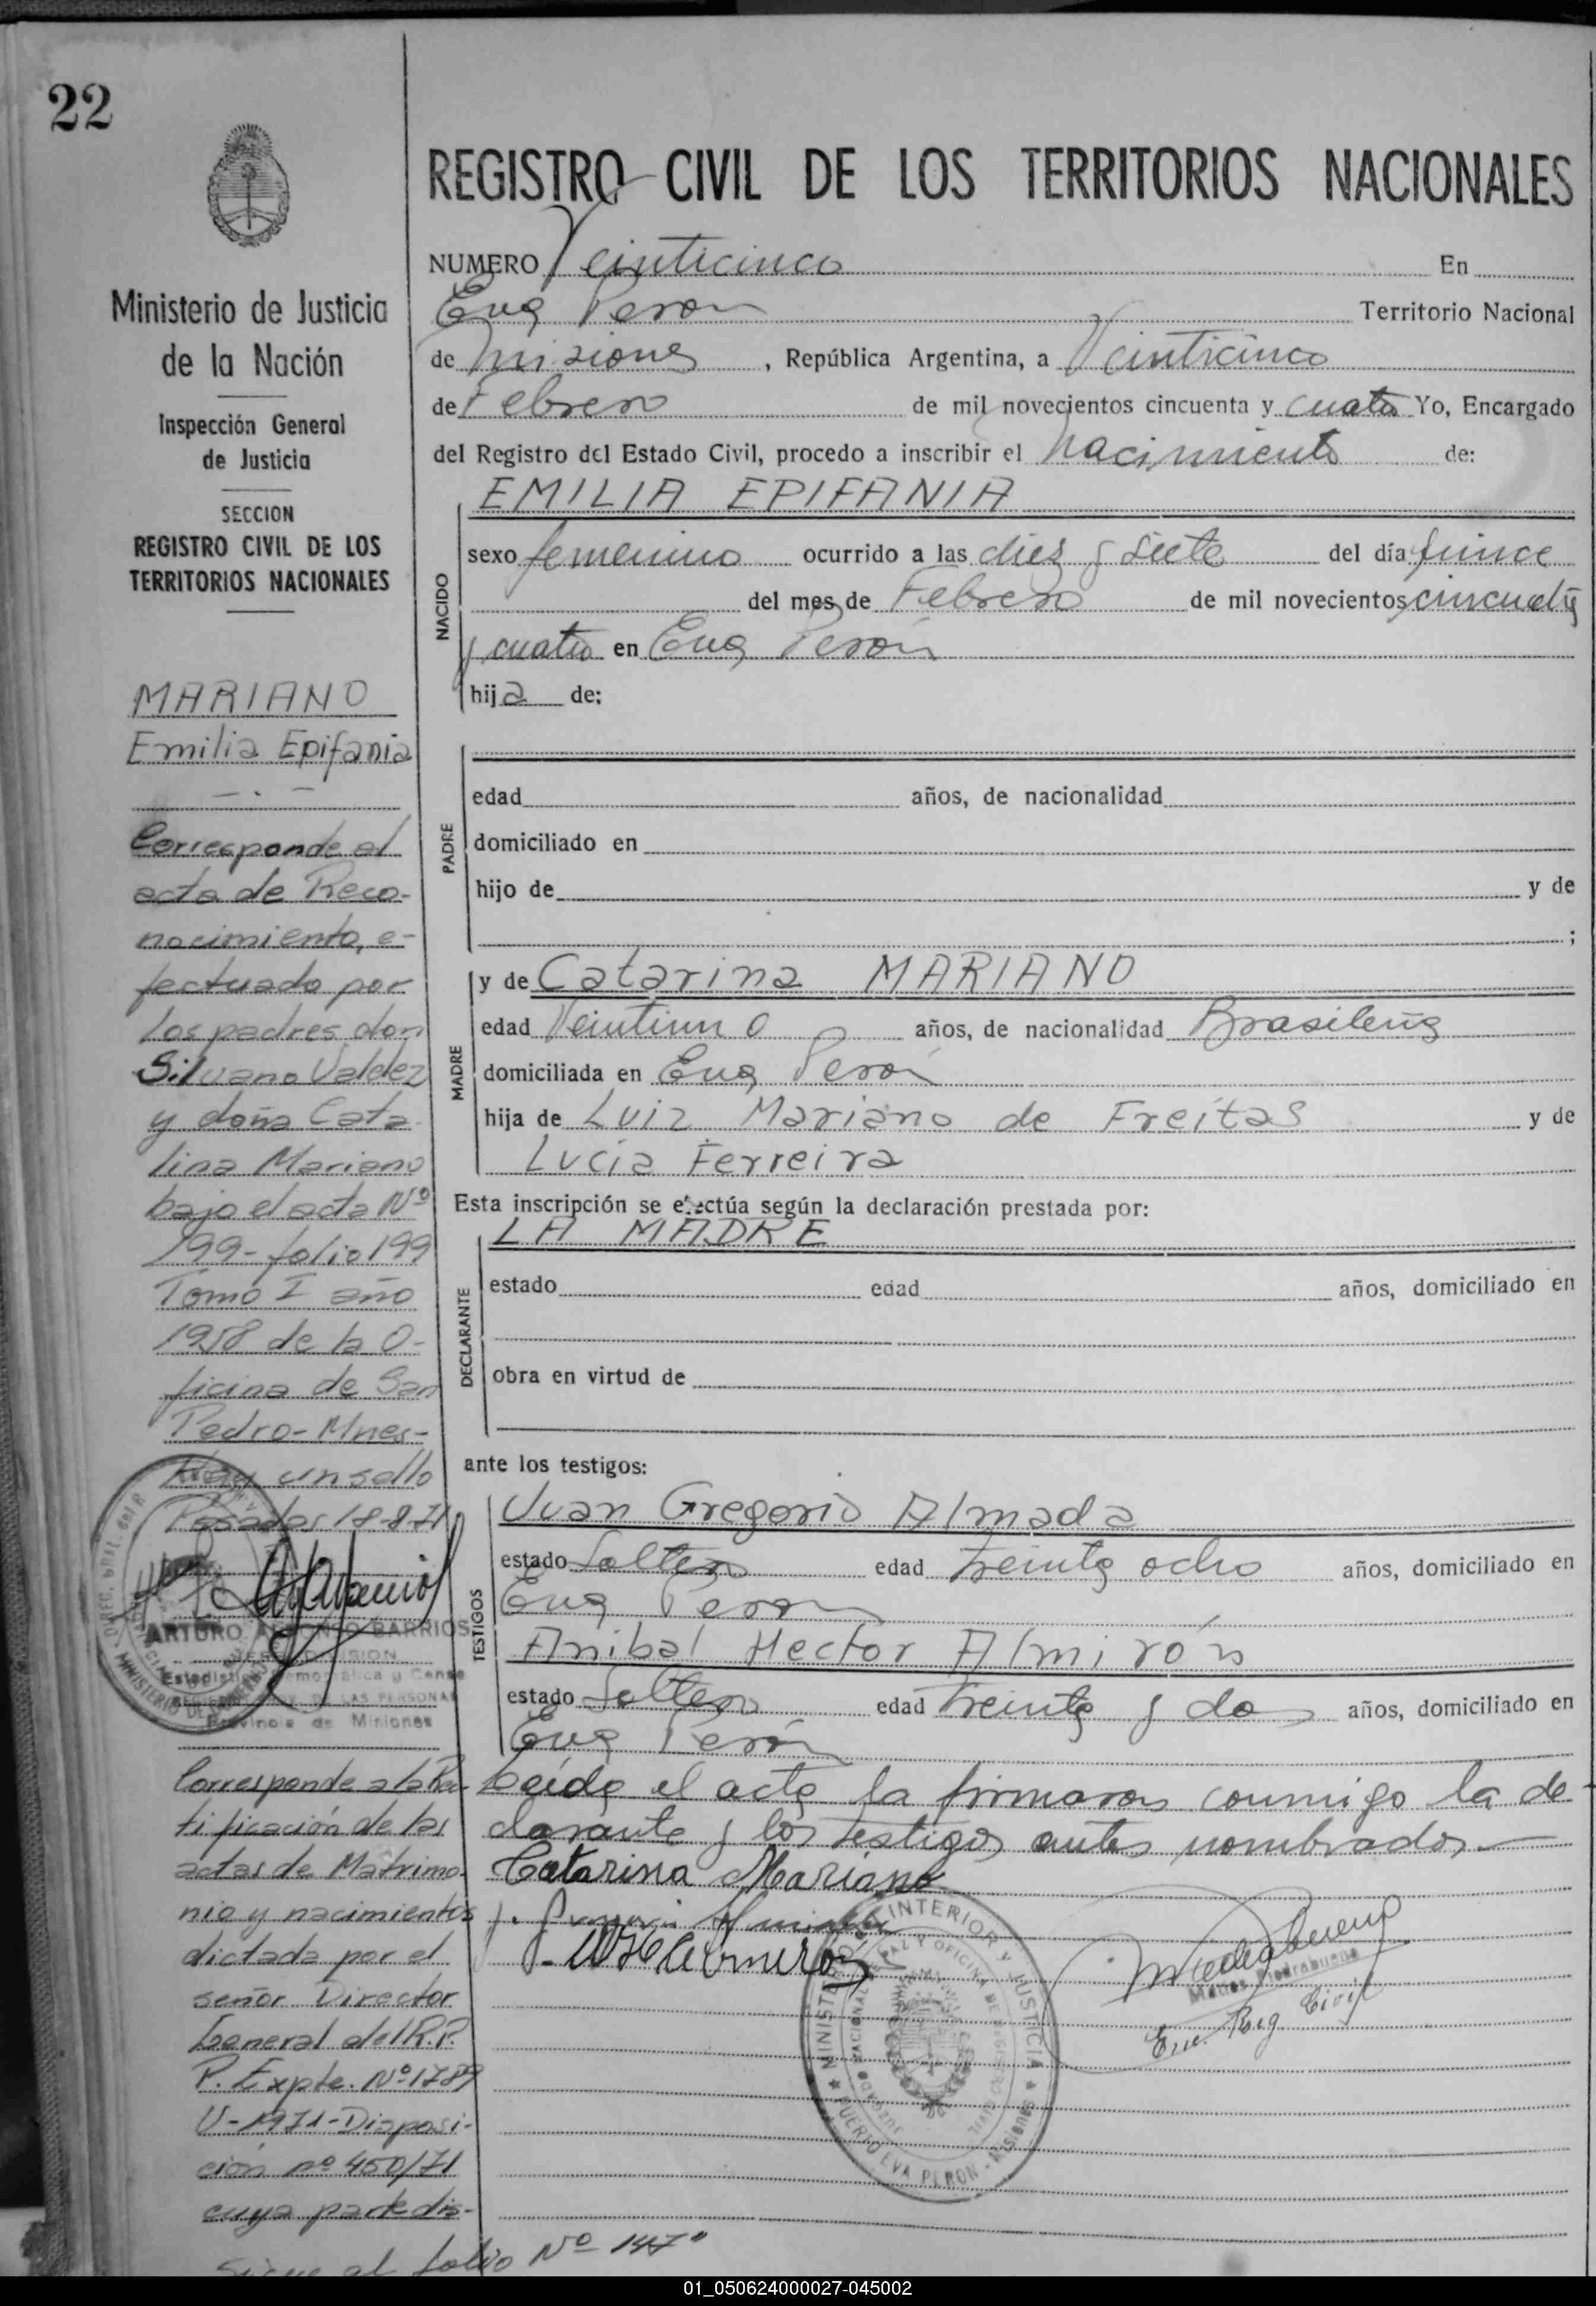 22
REGISTRO CIVIL DE LOS TERRITORIOS NACIONALES
Ministerio de Justicia
de la Nación
Inspección General
de Justicia
SECCION
REGISTRO CIVIL DE LOS
TERRITORIOS NACIONALES
MARIANO
Emilia Epifania
Corresponde al
acta de Reco-
nocimiento, e-
fectuado por
los padres don
Silvano Valdez
y doña Cata
lina Mariano
bajo el acta Nº
199- folio 199
Tomo I año
1958 de la O-
ficina de San
Pedro-Mnes-
Hay un sello
Posadas 18-8-71
ARTURO BARRIOS
DIVISION
Provincia de Misiones
Corresponde a la Rec
tificación de las
actas de Matrimo-
nio y nacimientos
dictada por el
señor Director
General del R.P.
P. Expte. Nº 1789
U-1971-Disposi-
ción nº 450/71
cuya parte dis-
Sigue al folio Nº 147"
NUMERO Veinticinco En
Eva Peron Territorio Nacional
de Misiones, República Argentina, a Veinticinco
de Febrero de mil novecientos cincuenta y cuatro Yo, Encargado
del Registro del Estado Civil, procedo a inscribir el Nacimiento de:
NACIDO
EMILIA EPIFANIA
sexo femenino ocurrido a las diez y siete del día quince
del mes de Febrero de mil novecientos cincuenta
y cuatro en Eva Perón
hija de:
PADRE
edad años, de nacionalidad
domiciliado en
hijo de y de
;
MADRE
y de Catarina MARIANO
edad Veintiuno años, de nacionalidad Brasileña
domiciliada en Eva Perón
hija de Luiz Mariano de Freitas y de
Lucia Ferreira
Esta inscripción se efectúa según la declaración prestada por:
DECLARANTE
LA MADRE
estado edad años, domiciliado en
obra en virtud de
ante los testigos:
TESTIGOS
Juan Gregorio Almada
estado Soltero edad treinta ocho años, domiciliado en
Eva Peron
Anibal Hector Almirón
estado Soltero edad treinta y dos años, domiciliado en
Eva Perón
Leída el acta la firmaron conmigo la de-
clarante y los testigos antes nombrados.
Catarina Mariano
Matias Piedrabuena
Enc. Reg Civil
MINISTERIO INTERIOR Y JUSTICIA
PUERTO EVA PERON - MISIONES
01_050624000027-045002